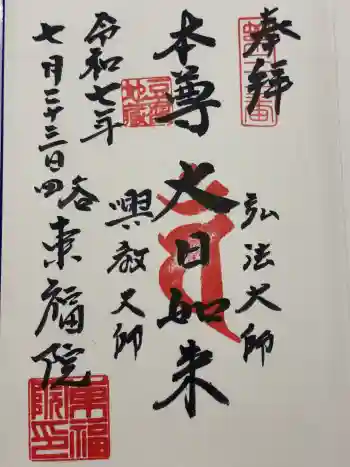 奉拝
弘法大師
本尊 大日如来
興教大師
令和七年
七月二十三日 四谷 東福院
豆腐地蔵
東福院印